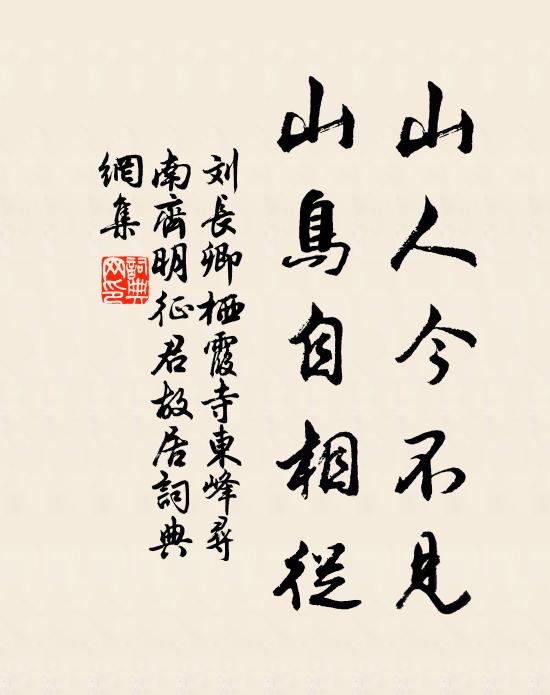 山人今不見
山鳥自相從
刘長卿栖霞寺東峰尋
南齊明征君故居詞典
網集
詞典
网印